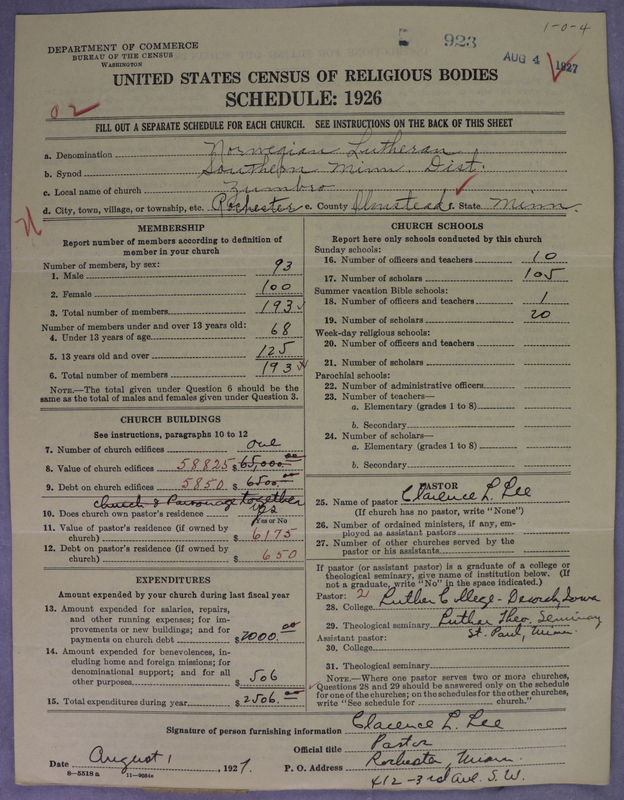 1-0-4
923
AUG 4 1927
DEPARTMENT OF COMMERCE
BUREAU OF THE CENSUS
WASHINGTON
UNITED STATES CENSUS OF RELIGIOUS BODIES
SCHEDULE: 1926
02
FILL OUT A SEPARATE SCHEDULE FOR EACH CHURCH. SEE INSTRUCTIONS ON THE BACK OF THIS SHEET
a. Denomination Norwegian Lutheran
b. Synod Southern Minn. Dist.
c. Local name of church Zumbro
d. City, town, village, or township, etc. Rochester e. County Olmstead f. State Minn.
MEMBERSHIP
Report number of members according to definition of
member in your church
Number of members, by sex:
1. Male 93
2. Female 100
3. Total number of members 193
Number of members under and over 13 years old:
4. Under 13 years of age 68
5. 13 years old and over 125
6. Total number of members 193
NOTE.—The total given under Question 6 should be
same as the total of males and females given under Question 3.
CHURCH BUILDINGS
See instructions, paragraphs 10 to 12
7. Number of church edifices one
8. Value of church edifices 58825 $65,000.00
9. Debt on church edifices 5850 $6500.00
church & Parsonage together
10. Does church own pastor's residence yes
Yes or No
11. Value of pastor's residence (if owned by
church) $6175
12. Debt on pastor's residence (if owned by
church) $650
EXPENDITURES
Amount expended by your church during last fiscal year
13. Amount expended for salaries, repairs,
and other running expenses; for im-
provements or new buildings; and for
payments on church debt $2000.00
14. Amount expended for benevolences, in-
cluding home and foreign missions; for
denominational support; and for all
other purposes $506
15. Total expenditures during year $2506.00
CHURCH SCHOOLS
Report here only schools conducted by this church
Sunday schools:
16. Number of officers and teachers 10
17. Number of scholars 105
Summer vacation Bible schools:
18. Number of officers and teachers 1
19. Number of scholars 20
Week-day religious schools:
20. Number of officers and teachers
21. Number of scholars
Parochial schools:
22. Number of administrative officers
23. Number of teachers—
a. Elementary (grades 1 to 8)
b. Secondary
24. Number of scholars—
a. Elementary (grades 1 to 8)
b. Secondary
PASTOR
25. Name of pastor Clarence L. Lee
(If church has no pastor, write "None")
26. Number of ordained ministers, if any, em-
ployed as assistant pastors
27. Number of other churches served by the
pastor or his assistants
If pastor (or assistant pastor) is a graduate of a college or
theological seminary, give name of institution below. (If
not a graduate, write "No" in the space indicated.)
Pastor: 2
28. College Luther College - Decorah, Iowa
29. Theological seminary Luther Theo. Seminary
St. Paul, Minn.
Assistant pastor:
30. College
31. Theological seminary
NOTE.—Where one pastor serves two or more churches,
Questions 28 and 29 should be answered only on the schedule
for one of the churches; on the schedules for the other churches,
write "See schedule for church."
Signature of person furnishing information Clarence L. Lee
Official title Pastor
Date August 1, 1927. P. O. Address Rochester, Minn.
412-3rd Ave. S.W.
8-5518a 11-9054